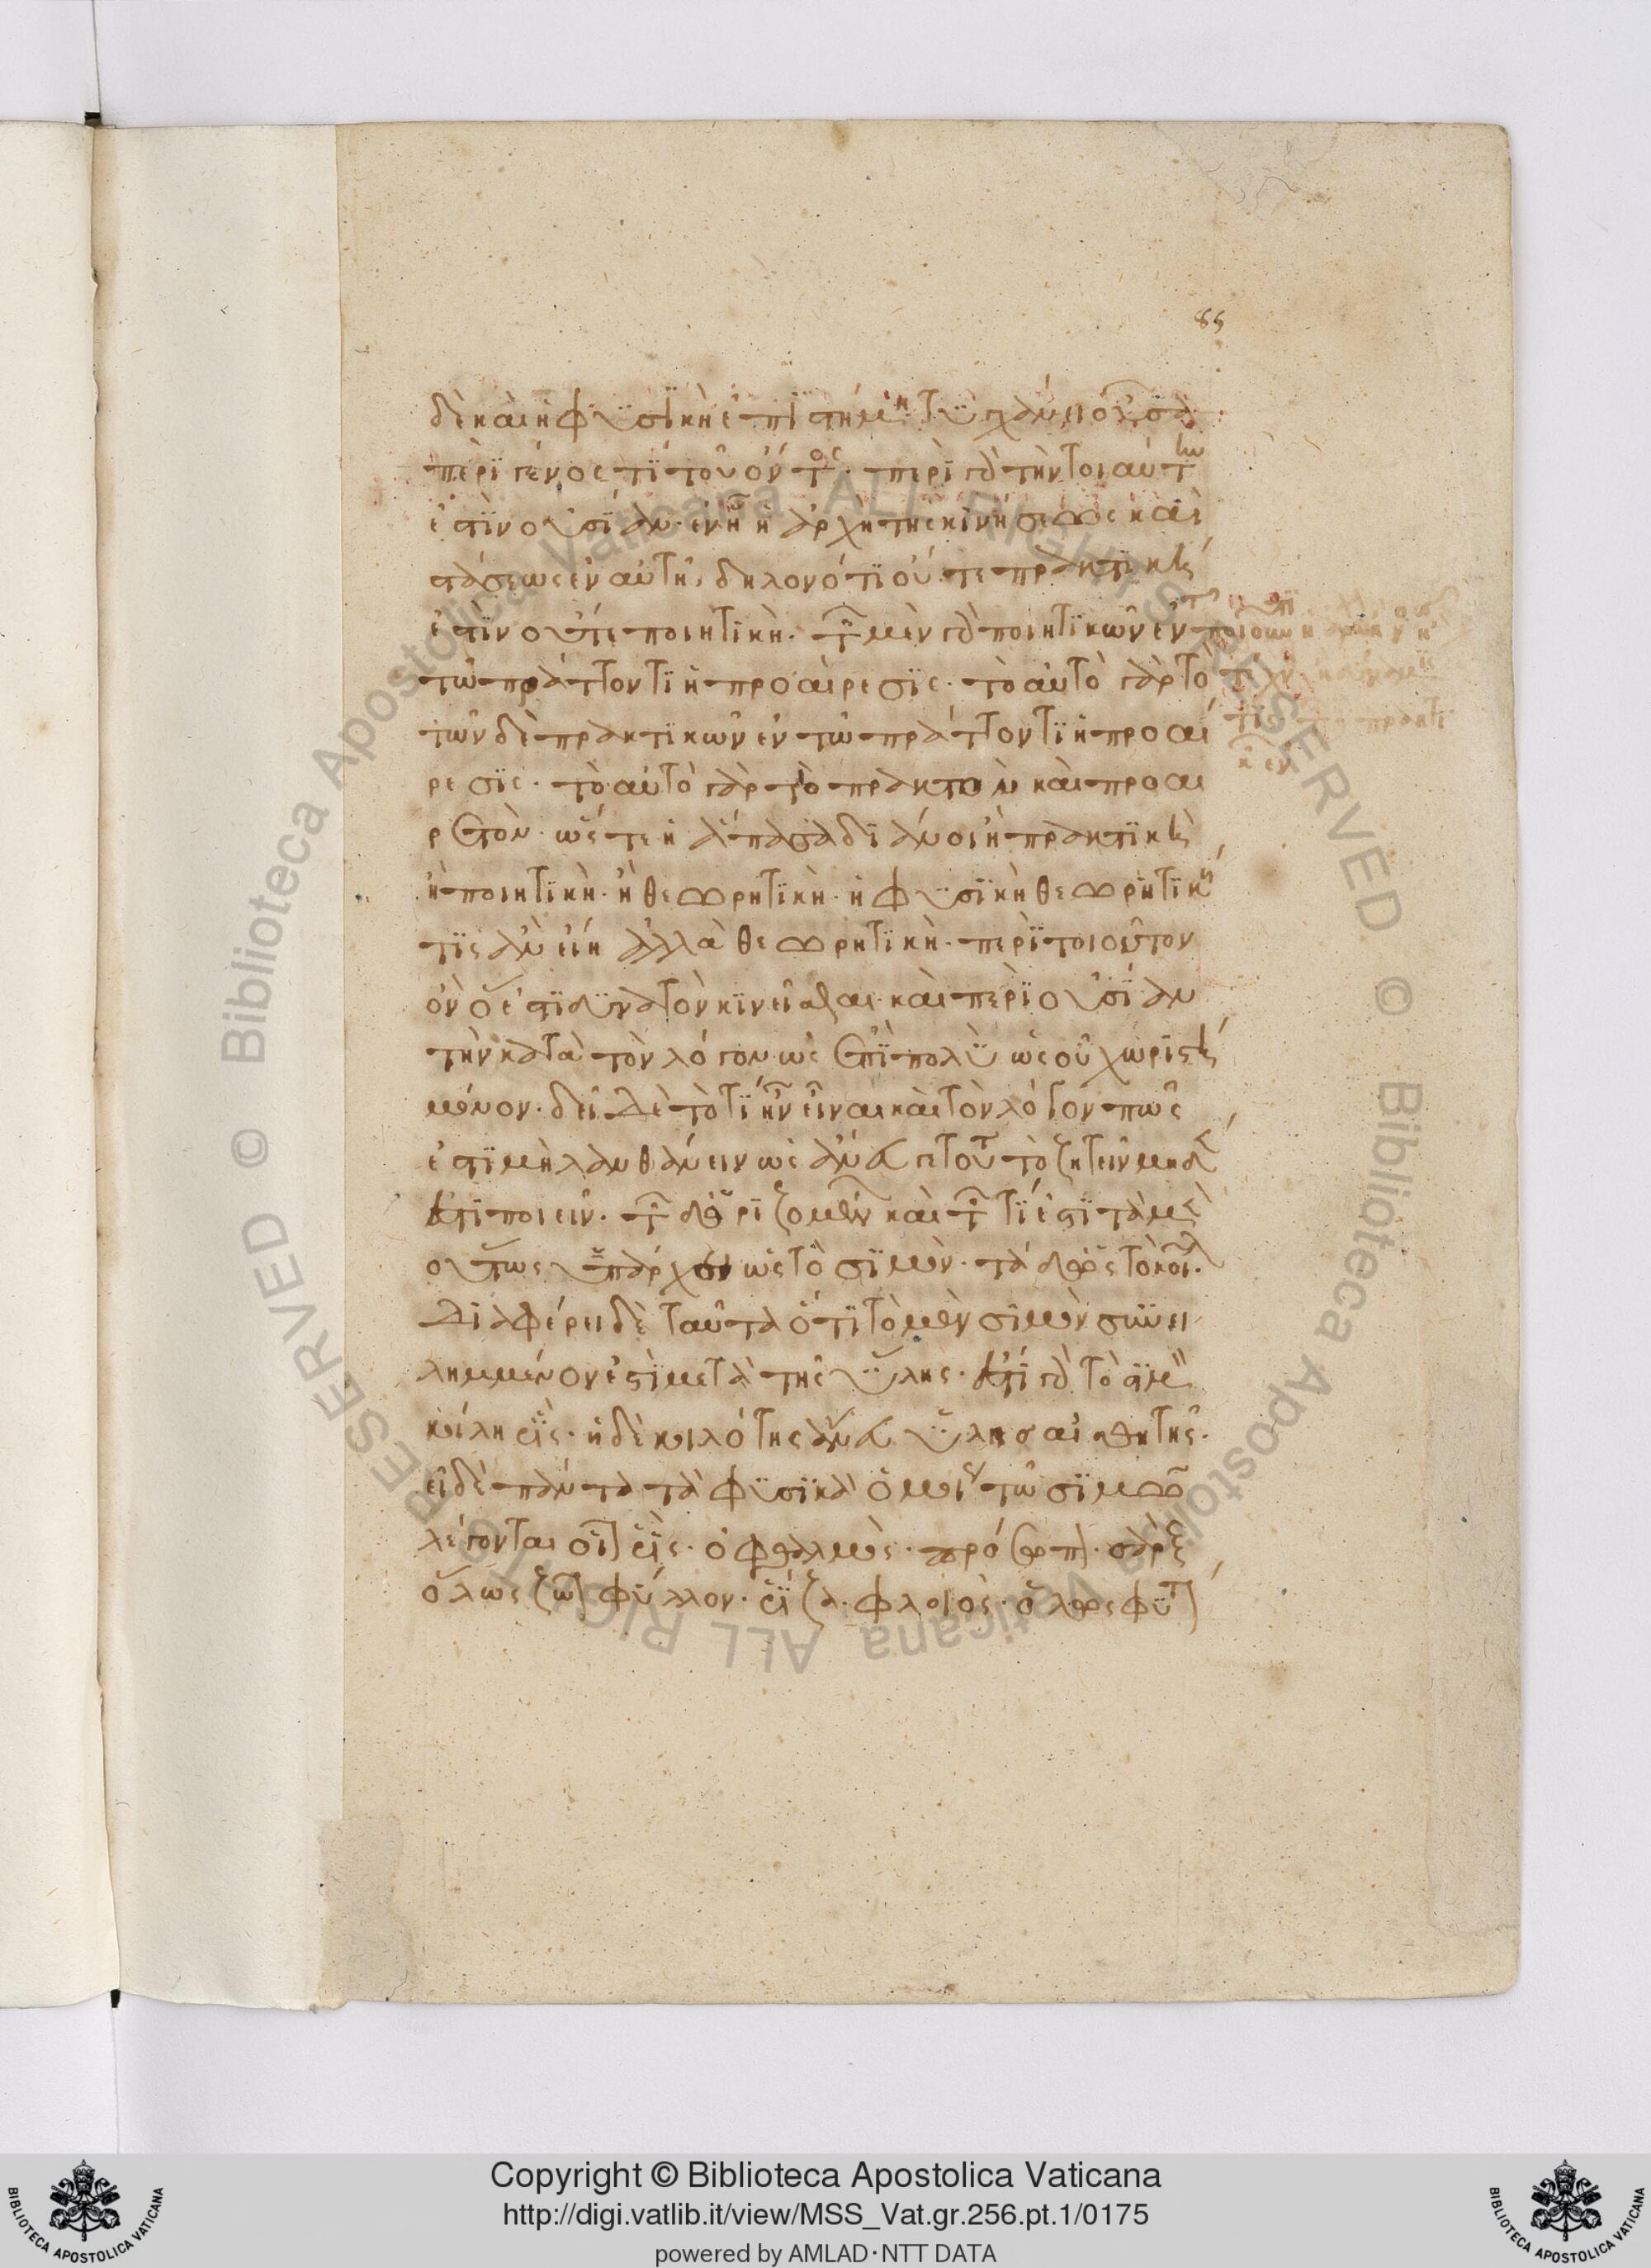 85
δὲ καὶ ἡ φυσικὴ ἐπιστήμη τυγχάνει οὖσα
περὶ γένος τι τοῦ ὄντος· περὶ γὰρ τὴν τοιαύτην
ἐστὶν οὐσίαν· ἐν ἧ ἡ ἀρχὴ τῆς κινήσεως καὶ
στάσεως ἐν αὐτῆ, δηλονότι οὔτε πρακτικὴ
ἐστὶν οὔτε ποιητικὴ· τῶν μὲν γὰρ ποιητικῶν ἐν
τῶ πράττοντι ἡ προαίρεσις· τὸ αὐτὸ γὰρ τὸ
τῶν δὲ πρακτικῶν ἐν τῶ πράττοντι ἡ προαί
ρεσις· τὸ αὐτὸ γὰρ τὸ πρακτὸν καὶ προαι
ρετὸν· ὥστε ἡ ἅπασα διάνοι ἢ πρακτικὴ
ἢ ποιητικὴ· ἢ θεωρητικὴ· ἡ φυσικὴ θεωρητική
τις ἂν εἴη ἀλλὰ θεωρητικὴ· περὶ τοιοῦτον
ὂν ὅ ἐστι δυνατὸν κινεῖσθαι· καὶ περὶ οὐσίαν
τὴν κατὰ τὸν λόγον ὡς ἐπὶ πολὺ ὡς οὐ χωριστὴ
μόνον· δεῖ δὲ τὸ τί ἦν εἶναι καὶ τὸν λόγον πῶς
ἐστὶ μὴ λανθάνειν ὡς ἄνευ γε τοῦ τὸ ζητεῖν μηδέν
ἐστι ποιεῖν· τῶν δὲ ὁριζομένων καὶ τῶν τί ἐστι τὰ μὲν
οὕτως ὑπάρχει ὡς τὸ σιμὸν· τὰ δὲ ὡς τὸ κοῖλον·
διαφέρει δὲ ταῦτα ὅτι τὸ μὲν σιμὸν συνει
λημμένον ἐστὶ μετὰ τῆς ὕλης· ἔστι γὰρ τὸ σιμὸν
κοίλη ῥίς· ἡ δὲ κοιλότης ἄνευ ὕλης αἰσθητῆς·
εἰ δὲ πάντα τὰ φυσικὰ ὁμοίως τῶ σιμῶ
λέγονται οἷον ῥίς· ὀφθαλμὸς· πρόσωπον· σὰρξ
ὅλως ζῶον φύλλον· ῥίζα· φλοιὸς· ὅλως φυτόν
Copyright © Biblioteca Apostolica Vaticana
http://digi.vatlib.it/view/MSS_Vat.gr.256.pt.1/0175
powered by AMLAD·NTT DATA